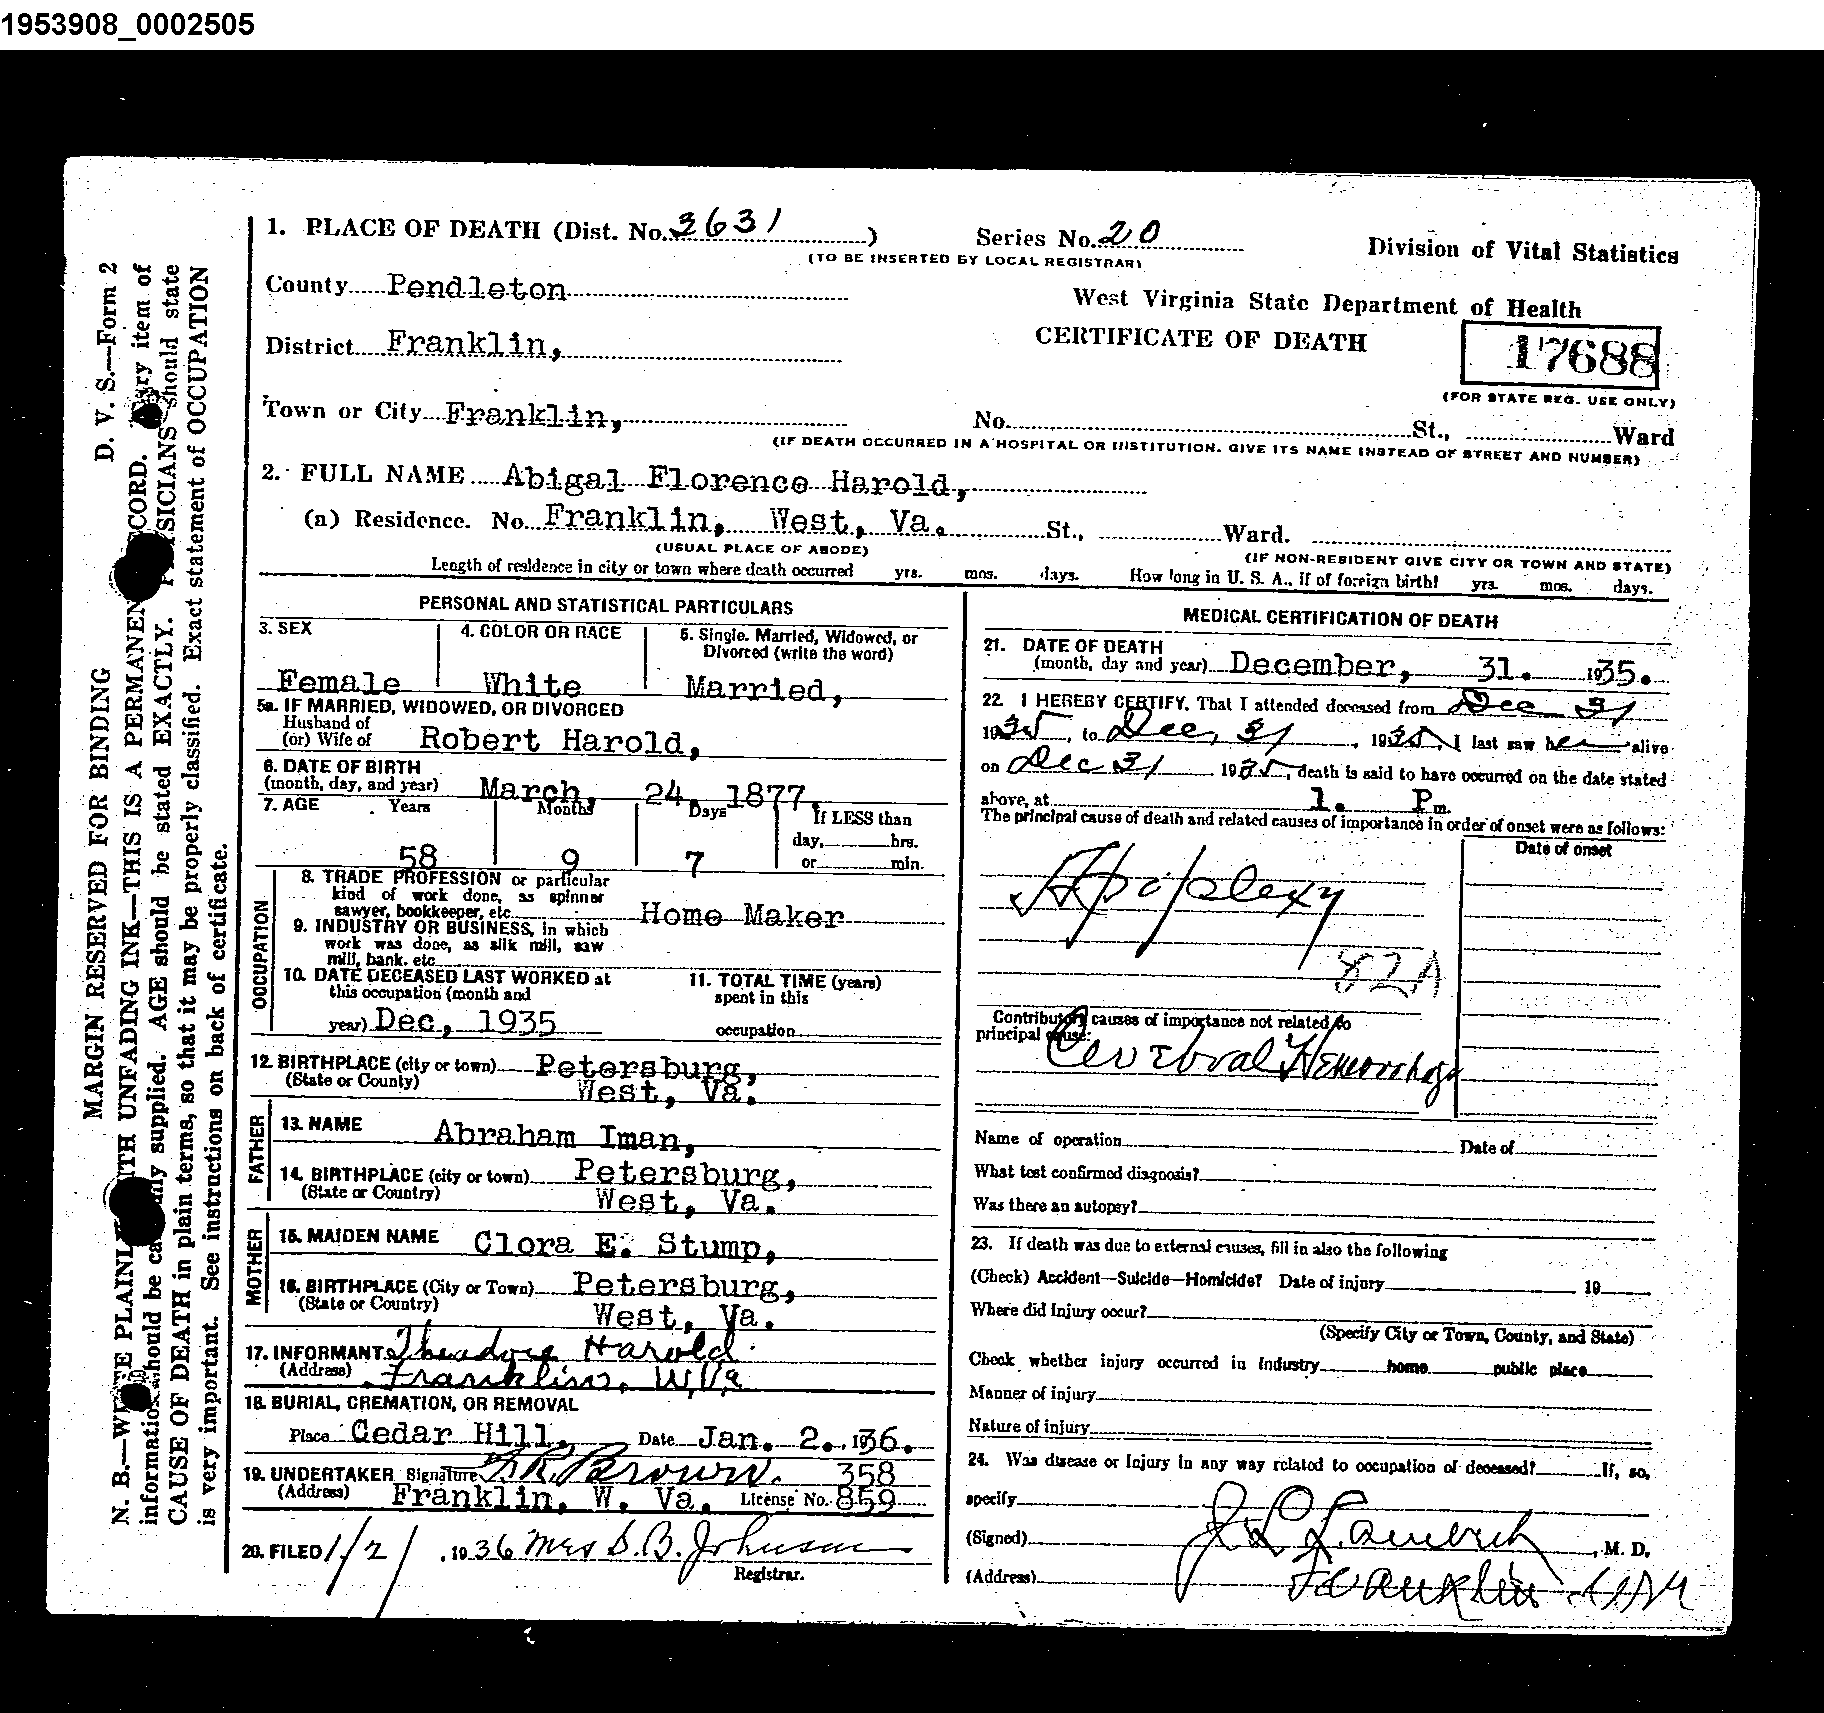 1953908_0002505
D. V. S.—Form 2
MARGIN RESERVED FOR BINDING
N. B.—WRITE PLAINLY WITH UNFADING INK—THIS IS A PERMANENT RECORD. Every item of
information should be carefully supplied. AGE should be stated EXACTLY. PHYSICIANS should state
CAUSE OF DEATH in plain terms, so that it may be properly classified. Exact statement of OCCUPATION
is very important. See instructions on back of certificate.
1. PLACE OF DEATH (Dist. No. 3631) Series No. 20
(TO BE INSERTED BY LOCAL REGISTRAR)
Division of Vital Statistics
County Pendleton
West Virginia State Department of Health
CERTIFICATE OF DEATH
17688
(FOR STATE REG. USE ONLY)
District Franklin,
Town or City Franklin, No. St., Ward
(IF DEATH OCCURRED IN A HOSPITAL OR INSTITUTION, GIVE ITS NAME INSTEAD OF STREET AND NUMBER)
2. FULL NAME Abigal Florence Harold,
(a) Residence. No. Franklin, West, Va. St., Ward.
(USUAL PLACE OF ABODE) (IF NON-RESIDENT GIVE CITY OR TOWN AND STATE)
Length of residence in city or town where death occurred yrs. mos. days. How long in U. S. A., if of foreign birth? yrs. mos. days.
PERSONAL AND STATISTICAL PARTICULARS
3. SEX 4. COLOR OR RACE 5. Single, Married, Widowed, or
Divorced (write the word)
Female White Married,
5a. IF MARRIED, WIDOWED, OR DIVORCED
Husband of
(or) Wife of Robert Harold,
6. DATE OF BIRTH
(month, day, and year) March, 24, 1877.
7. AGE Years Months Days If LESS than
day, hrs.
or min.
58 9 7
OCCUPATION
8. TRADE PROFESSION or particular
kind of work done, as spinner
sawyer, bookkeeper, etc. Home Maker
9. INDUSTRY OR BUSINESS, in which
work was done, as silk mill, saw
mill, bank. etc.
10. DATE DECEASED LAST WORKED at
this occupation (month and
year) Dec, 1935
11. TOTAL TIME (years)
spent in this
occupation
12. BIRTHPLACE (city or town) Petersburg,
(State or County) West, Va.
FATHER
13. NAME Abraham Iman,
14. BIRTHPLACE (city or town) Petersburg,
(State or Country) West, Va.
MOTHER
15. MAIDEN NAME Clora E. Stump,
16. BIRTHPLACE (City or Town) Petersburg,
(State or Country) West, Va.
17. INFORMANT Theadore Harold
(Address) Franklin, W.Va
18. BURIAL, CREMATION, OR REMOVAL
Place Cedar Hill. Date Jan. 2. 1936.
19. UNDERTAKER Signature Brown. 358
(Address) Franklin, W. Va. License No. 859
20. FILED 1/2/, 1936 Mrs S. B. Johnson
Registrar.
MEDICAL CERTIFICATION OF DEATH
21. DATE OF DEATH
(month, day and year) December, 31. 1935.
22. I HEREBY CERTIFY, That I attended deceased from Dec 31
1935, to Dec, 31, 1935, I last saw her alive
on Dec 31 1935, death is said to have occurred on the date stated
above, at 1. P m.
The principal cause of death and related causes of importance in order of onset were as follows:
Date of onset
Apoplexy
82A
Contributory causes of importance not related to
principal cause:
Cerebral Hemorrhage
Name of operation Date of
What test confirmed diagnosis?
Was there an autopsy?
23. If death was due to external causes, fill in also the following
(Check) Accident—Suicide—Homicide? Date of injury 19
Where did Injury occur?
(Specify City or Town, County, and State)
Check whether injury occurred in Industry home public place
Manner of injury
Nature of injury
24. Was disease or Injury in any way related to occupation of deceased? If, so,
specify
(Signed) , M. D.
(Address) Franklin